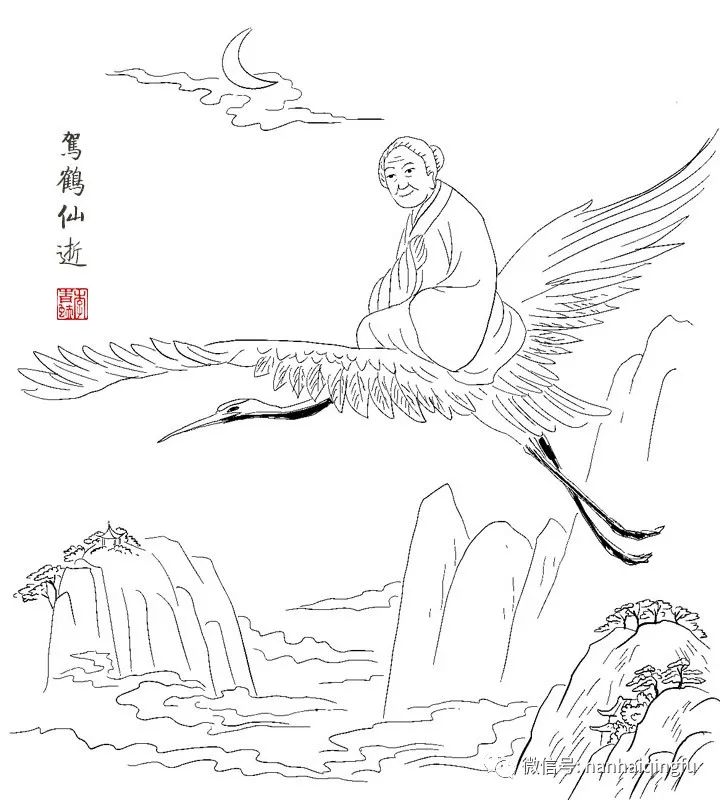 駕鶴仙逝
微信号: nanhaiqingfu